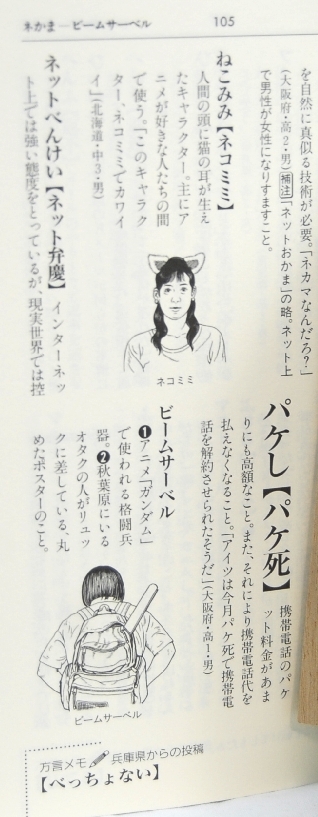 ネかま―ビームサーベル
105
を自然に真似る技術が必要。「ネカマなんだろ?」
(大阪府・高2・男)[補注]「ネットおかま」の略。ネット上
で男性が女性になりすますこと。
ねこみみ【ネコミミ】
人間の頭に猫の耳が生え
たキャラクター。主にア
ニメが好きな人たちの間
で使う。「このキャラク
ター、ネコミミでカワイ
イ」(北海道・中3・男)
ネコミミ
ネットべんけい【ネット弁慶】 インターネッ
ト上では強い態度をとっているが、現実世界では控
パケし【パケ死】 携帯電話のパケ
ット料金があま
りにも高額なこと。また、それにより携帯電話代を
払えなくなること。「アイツは今月パケ死で携帯電
話を解約させられたそうだ」(大阪府・高1・男)
ビームサーベル
❶アニメ「ガンダム」
で使われる格闘兵
器。❷秋葉原にいる
オタクの人がリュッ
クに差している、丸
めたポスターのこと。
ビームサーベル
方言メモ 兵庫県からの投稿
【べっちょない】